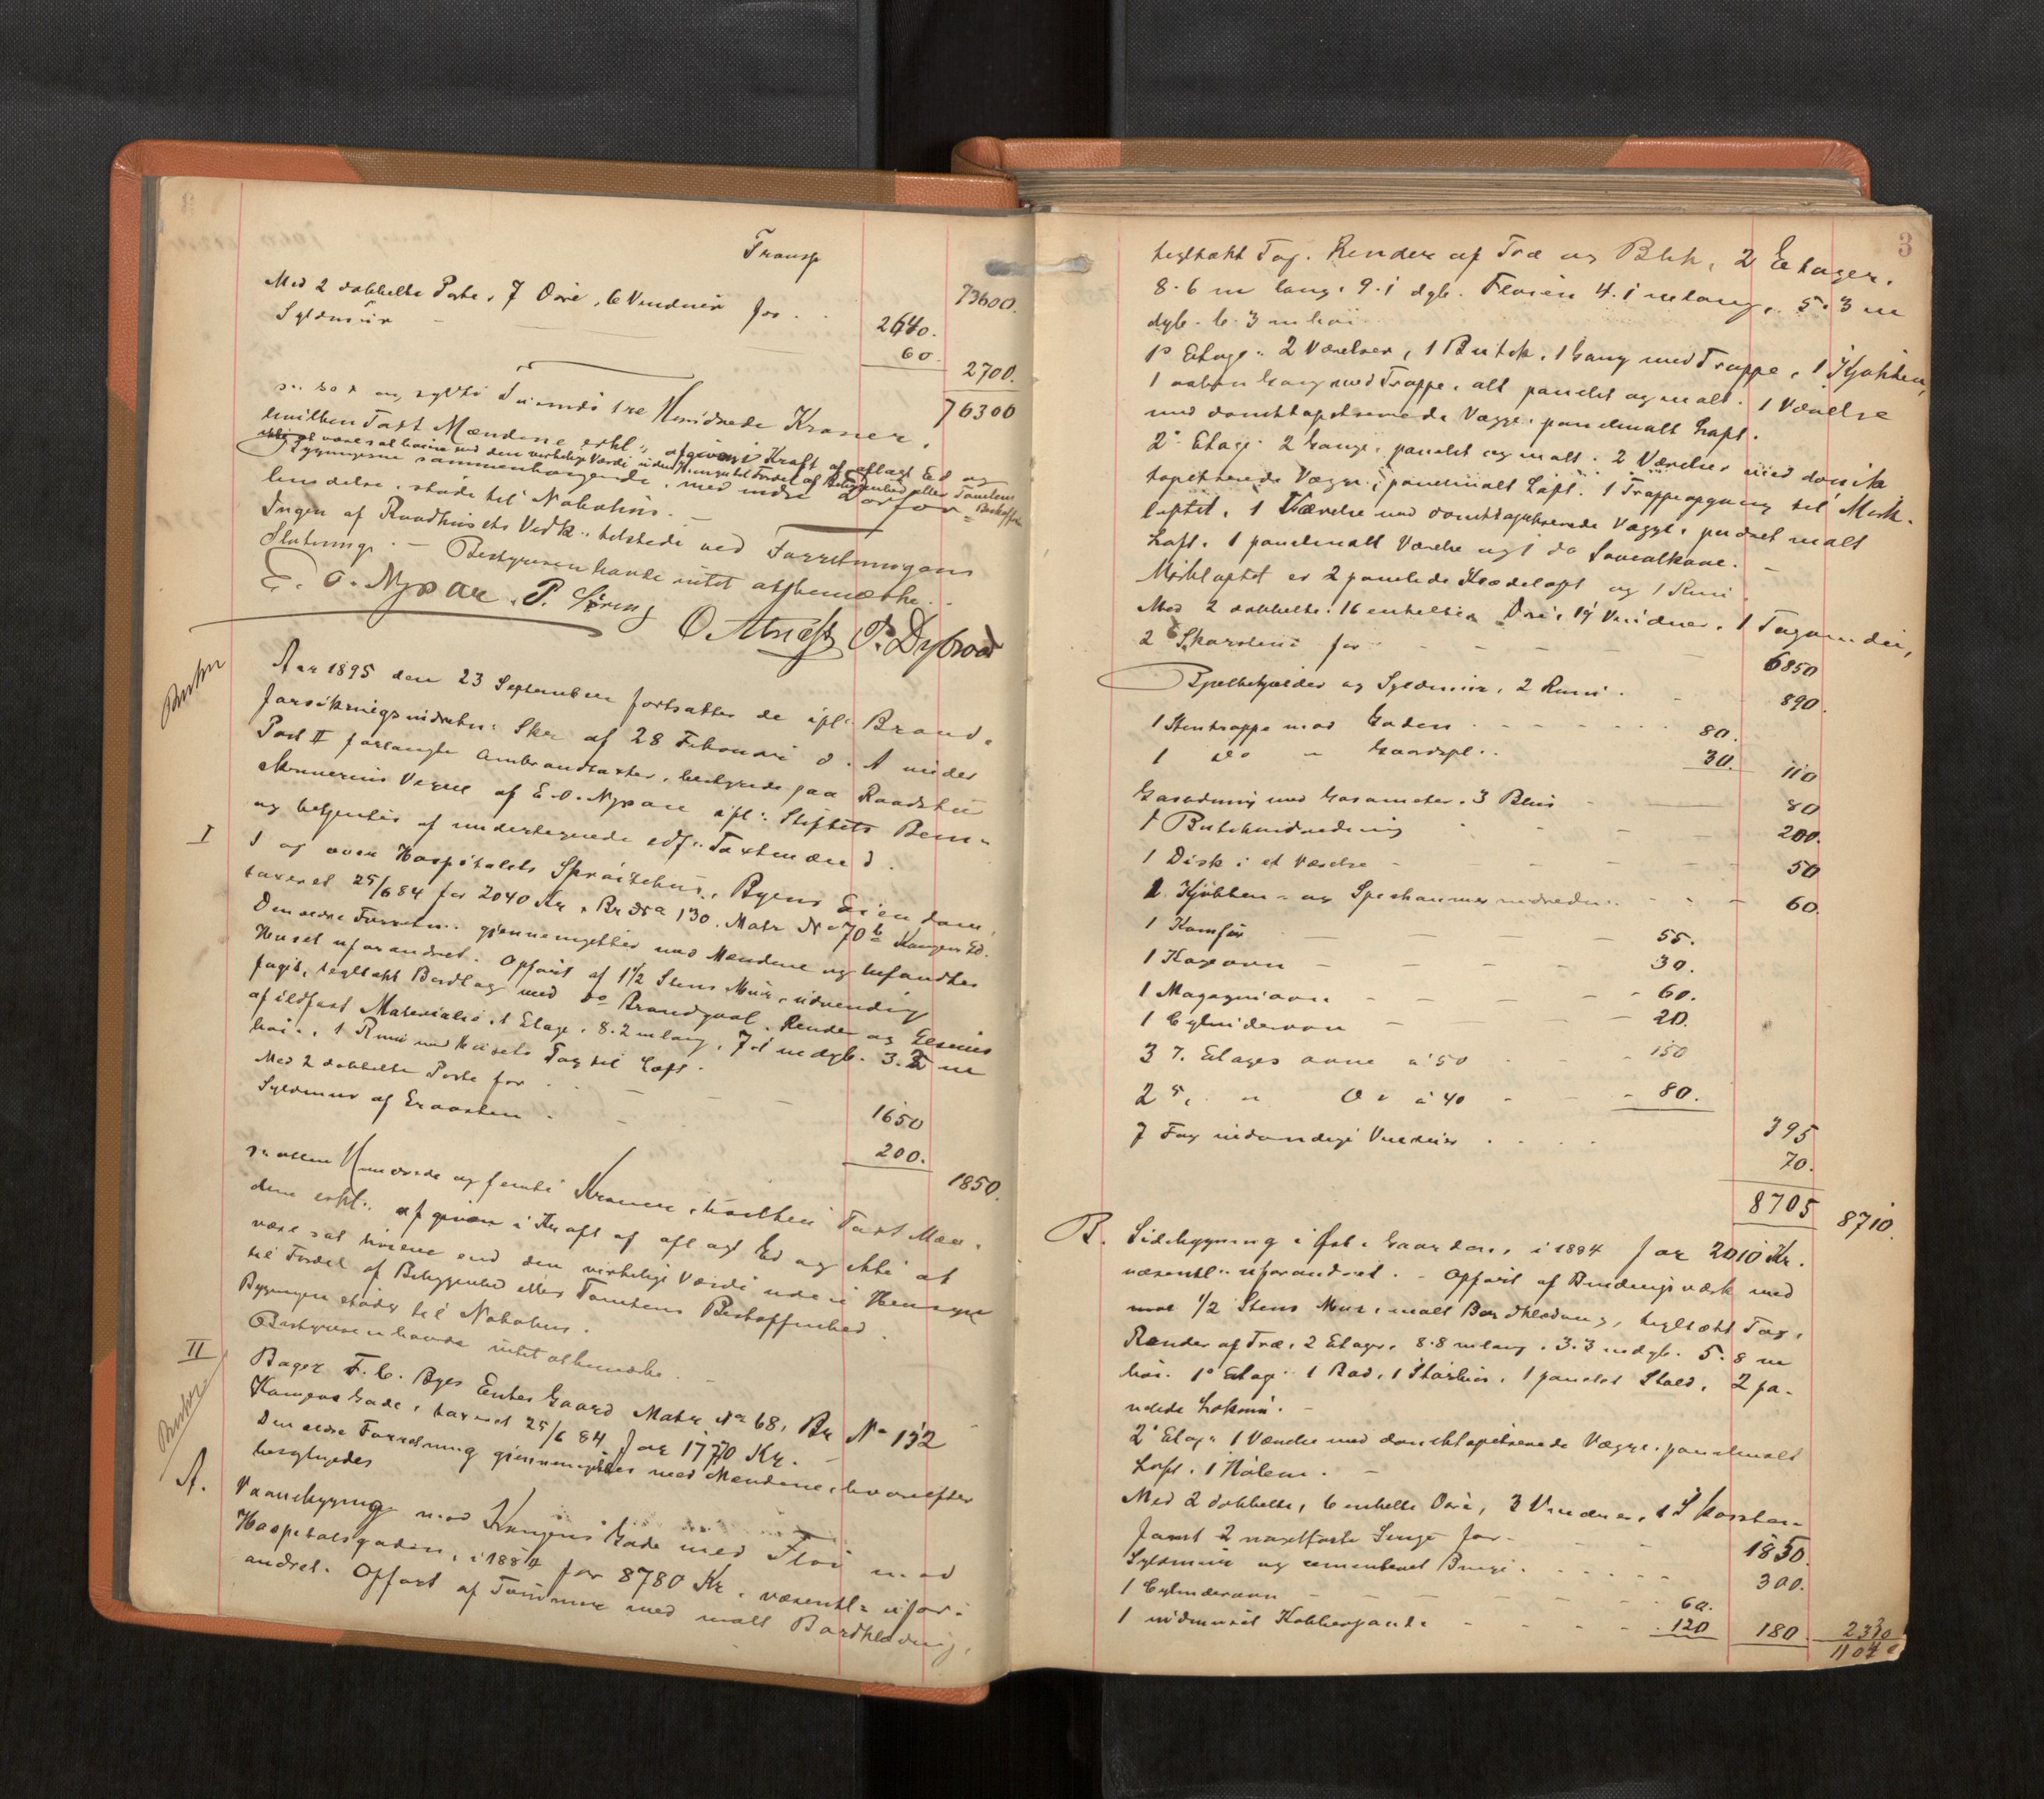 Transp
73600.
Med 2 dobbelte Porte, 7 Döre, 6 Vinduer for
2640.
Syldmur
60.
2700.
76300
sytti Tusinde tre Hundrede Kroner,
hvilken Taxt Mændene erkl. afgiven i Kraft af aflagt Ed og
ikke at være sat höiere end den virkelige Værdi uden Hensyn til Fordel af Beliggenhed eller Tomtens Beskaffen
Bygningerne sammenhængende, med indre Dörfor-
bindelse, stöde til Nabohus.
Ingen af Raadhusets Vedk. tilstede ved Forretningens
Slutning. - Bestyreren havde intet at bemærke.
E. O. Nypan. P. O. P. Dybvad
Aar 1895 den 23 September fortsattes de ifl. Brand-
forsikringsindretn. Skr. af 28 Februar d. A. under
Post II forlangte Ombrandtaxter, bestyrede paa Raadstu
skriverens Vegne af E. O. Nypan ifl. Stiftets Bem.
og betjentes af undertegnede edf. Taxtmænd.
I
1 og oven Hospitalets Sproitehus, Byens Eiendom,
taxeret 25/6 84 for 2040 Kr, Br. No 130. Matr. No 70b Kongens Gd.
Den ældre Forretn. gjennemgikkes med Mændene og befandtes
Huset uforandret. Opfört af 1½ Stens Mur, udvendig
fuget, tegltækt Bordtag med do Brandgavl. Render og Gesims
af ildfast Materiale, 1 Etage, 8.2 m lang, 7.1 m dyb. 3.2 m
höi, 1 Rum med Husets Tag til Loft.
Med 2 dobbelte Porte for
1650
Syldmur af Graasten
200.
1850.
atten Hundrede og femti Kroner, hvilken Taxt Mæn-
dene erkl. afgiven i Kraft af aflagt Ed og ikke at
være sat höiere end den virkelige Værdi uden Hensyn
til Fordel af Beliggenhed eller Tomtens Beskaffenhed.
Bygningen stöder til Nabohus.
Bestyreren havde intet at bemærke.
II
Bager F. C. Byes Enkes Gaard Matr. No 68, Br. No 132
Kongens Gade, taxeret 25/6 84 for 17370 Kr.
Den ældre Forretning gjennemgikkes med Mændene, hvorefter
besigtigedes
A.
Vaaningsbygning mod Kongens Gade med Flöi mod
Hospitalsgaden, i 1884 for 8780 Kr, væsentl. ufor-
andret. Opfört af Tömmer med malt Bordklædning,
3
tegltækt Tag. Render af Træ og Blik, 2 Etager,
8.6 m lang, 9.1 dyb. Flöien 4.1 m lang, 5.3 m
dyb. 6.3 m höi.
1o Etage: 2 Værelser, 1 Butik, 1 Gang med Trappe, 1 Kjökken,
1 aaben Gang med Trappe, alt panelet og malt. 1 Værelse
med domsktapetserede Vægge, panelmalt Loft.
2o Etage: 2 Gange, panelet og malt. 2 Værelser med domsk
tapetserede Vægge, panelmalt Loft. 1 Trappeopgang til Mörk-
loftet, 1 Værelse med domsktapetserede Vægge, pudset malt
Loft. 1 panelmalt Værelse og 1 do Sovealkove.
Mörkloftet er 2 panelede Klædeloft og 1 Rum
Med 2 dobbelte, 16 enkelte Döre, 19 Vinduer, 1 Tagvindu,
2 Skorstene for
6850
Bjelkekjælder og Syldmur, 2 Rum
890.
1 Stentrappe mod Gaden
80.
1 do " Gaardspl.
30.
110
Gasledning med Gasometer, 3 Blus
80
1 Butikindredning
200.
1 Disk i et Værelse
50
2 Kjökken- og Speskammerindredn.
60.
1 Komfur
55.
1 Kogeovn
30.
1 Magasinovn
60.
1 Cylinderovn
20.
3 7. Etages ovne à 50
150
2 5. " Do à 40
80.
395
7 Fag indvendige Vinduer
70.
8705
8710.
B.
Sidebygning i Öst i Gaarden, i 1884 for 2010 Kr.
væsentl. uforandret. Opfört af Bindingsværk med
½ Stens Mur, malt Bordklædning, tegltækt Tag,
Render af Træ, 2 Etager, 8.8 m lang, 3.3 m dyb. 5.8 m
höi. 1o Etag: 1 Bod, 1 Stolrum, 1 panelet Stald, 2 pa-
nelede Lokum.
2o Etag: 1 Værelse med domsktapetserede Vægge, panelmalt
Loft. 1 Hölem.
Med 2 dobbelte, 6 enkelte Döre, 3 Vinduer, 1 Skorsten
samt 2 Senge for
1850.
Syldmur og cementeret Binge
300.
1 Cylinderovn
60.
1 indmuret Kobbergande
120
180
2330
11040